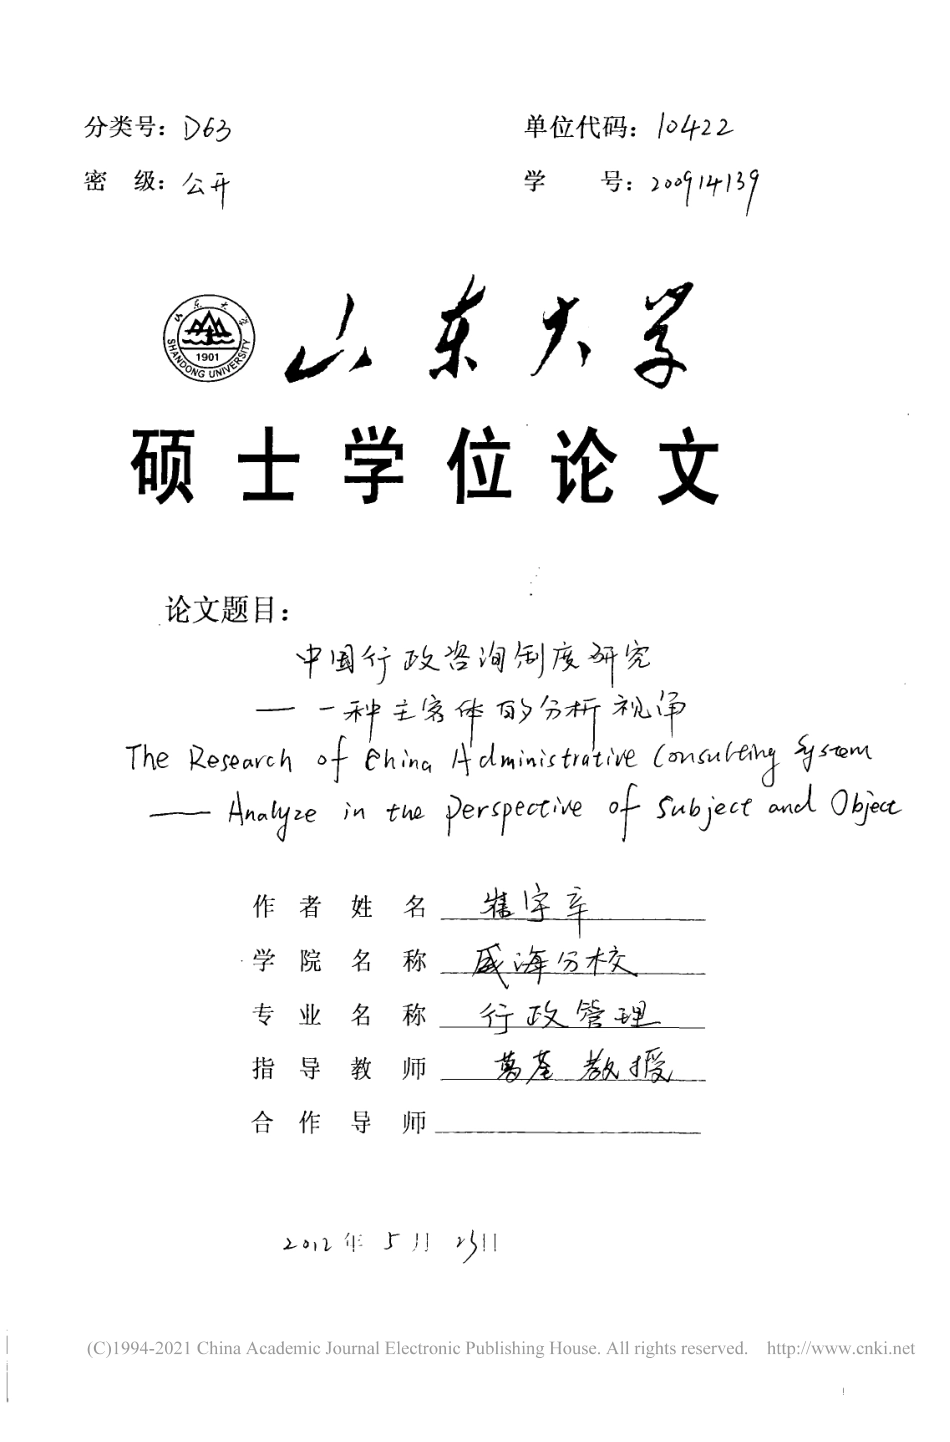 分类号：D63 单位代码：10422
密 级：公开 学 号：200914139
山东大学
SHANDONG UNIVERSITY
1901
山东大学
硕士学位论文
论文题目：
中国行政咨询制度研究
——一种主客体的分析视角
The Research of China Administrative Consulting System
—— Analyze in the perspective of Subject and Object
作者姓名 宇辛
学院名称 威海分校
专业名称 行政管理
指导教师 葛荃 教授
合作导师
2012年5月23日
(C)1994-2021 China Academic Journal Electronic Publishing House. All rights reserved. http://www.cnki.net